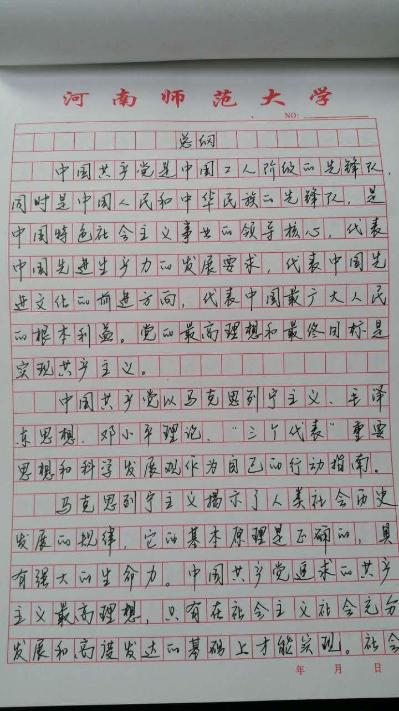 河南师范大学
NO:
总纲
中国共产党是中国工人阶级的先锋队,
同时是中国人民和中华民族的先锋队,是
中国特色社会主义事业的领导核心,代表
中国先进生产力的发展要求,代表中国先
进文化的前进方向,代表中国最广大人民
的根本利益。党的最高理想和最终目标是
实现共产主义。
中国共产党以马克思列宁主义、毛泽
东思想、邓小平理论、“三个代表”重要
思想和科学发展观作为自己的行动指南。
马克思列宁主义揭示了人类社会历史
发展的规律,它的基本原理是正确的,具
有强大的生命力。中国共产党追求的共产
主义最高理想,只有在社会主义社会充分
发展和高度发达的基础上才能实现。社会
年 月 日